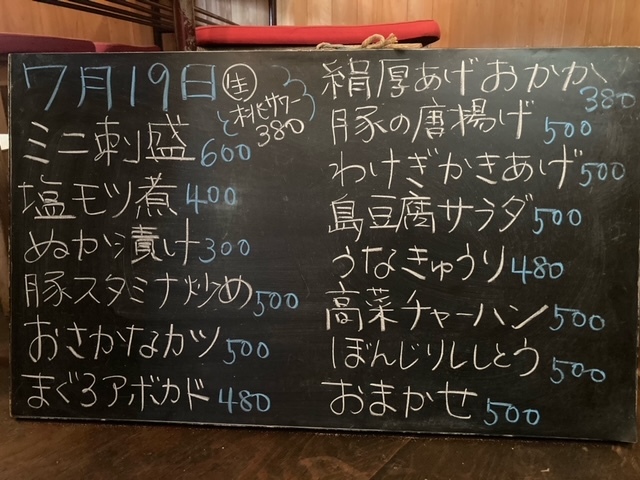 7月19日
生
桃サワー
380
ミニ刺盛 600
塩モツ煮 400
ぬか漬け 300
豚スタミナ炒め 500
おさかなカツ 500
まぐろアボカド 480
絹厚あげおかか 380
豚の唐揚げ 500
わけぎかきあげ 500
島豆腐サラダ 500
うなきゅうり 480
高菜チャーハン 500
ぼんじりししとう 500
おまかせ 500